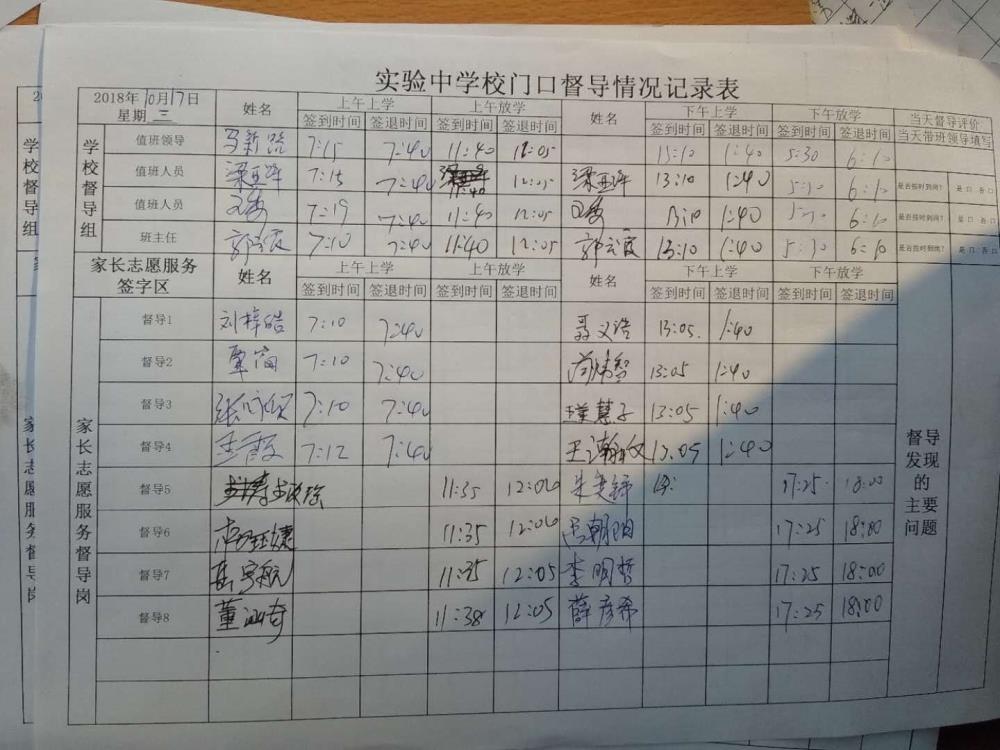 实验中学校门口督导情况记录表
2018年10月17日
星期 三
姓名 上午上学 上午放学 姓名 下午上学 下午放学 当天督导评价
签到时间 签退时间 签到时间 签退时间 签到时间 签退时间 签到时间 签退时间 当天带班领导填写
学校督导组
学校督导组
值班领导 7:15 7:40 11:40 12:05 13:10 1:40 5:30 6:10
值班人员 7:15 7:40 11:40 12:05 13:10 1:40 6:10 是否按时到岗? 是口 否口
值班人员 7:19 7:40 11:40 12:05 1:40 6:10 是否按时到岗? 是口 否口
班主任 郭云霞 7:10 7:40 11:40 12:05 郭云霞 13:10 1:40 6:10 是否按时到岗? 是口 否口
家长志愿服务
签字区
姓名 上午上学 上午放学 姓名 下午上学 下午放学
签到时间 签退时间 签到时间 签退时间 签到时间 签退时间 签到时间 签退时间
家长志愿服务督导岗
家长志愿服务督导岗
督导1 刘梓皓 7:10 7:40 聂文浩 13:05 1:40
督导2 覃 7:10 7:40 13:05 1:40
督导3 7:10 7:40 慧子 13:05 1:40
督导4 7:12 7:40 王瀚 13:05 1:40
督导5 11:35 12:00 朱 17:25 18:00
督导6 11:35 12:00 朝阳 17:25 18:00
督导7 岳宇航 11:35 12:05 李明哲 17:25 18:00
督导8 董 奇 11:38 12:05 薛彦希 17:25 18:00
督导
发现
的
主要
问题